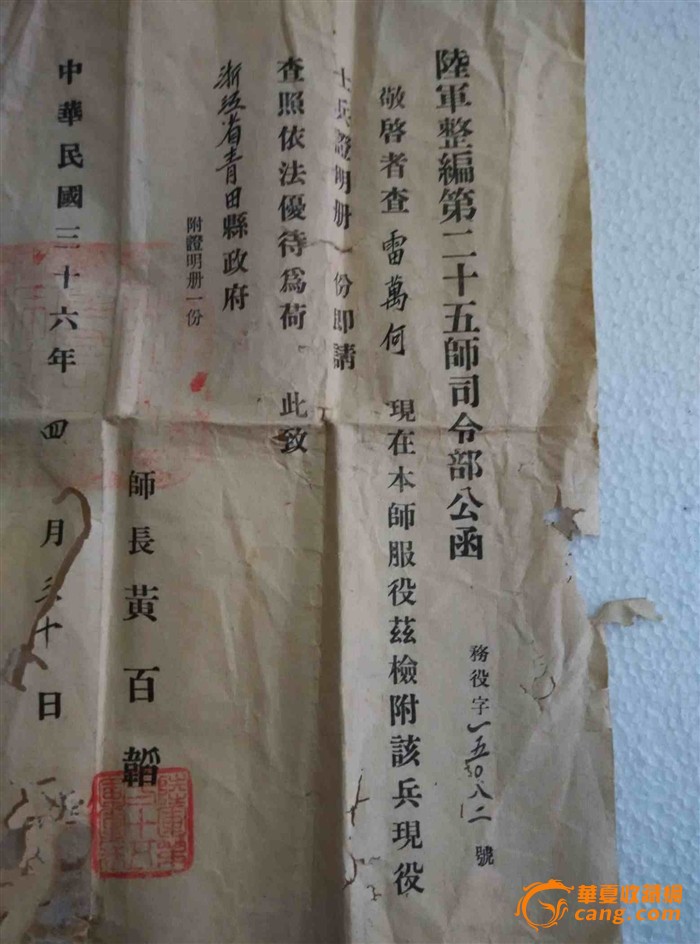 陸軍整編第二十五師司令部公函
務役字一五 八二號
敬啓者查雷萬何 現在本師服役茲檢附該兵現役
士兵證明册一份卽請
查照依法優待爲荷 此致
浙江省青田縣政府
附證明册一份
師長黃百韜
中華民國三十六年四月三十日
華夏收藏網
cang.com